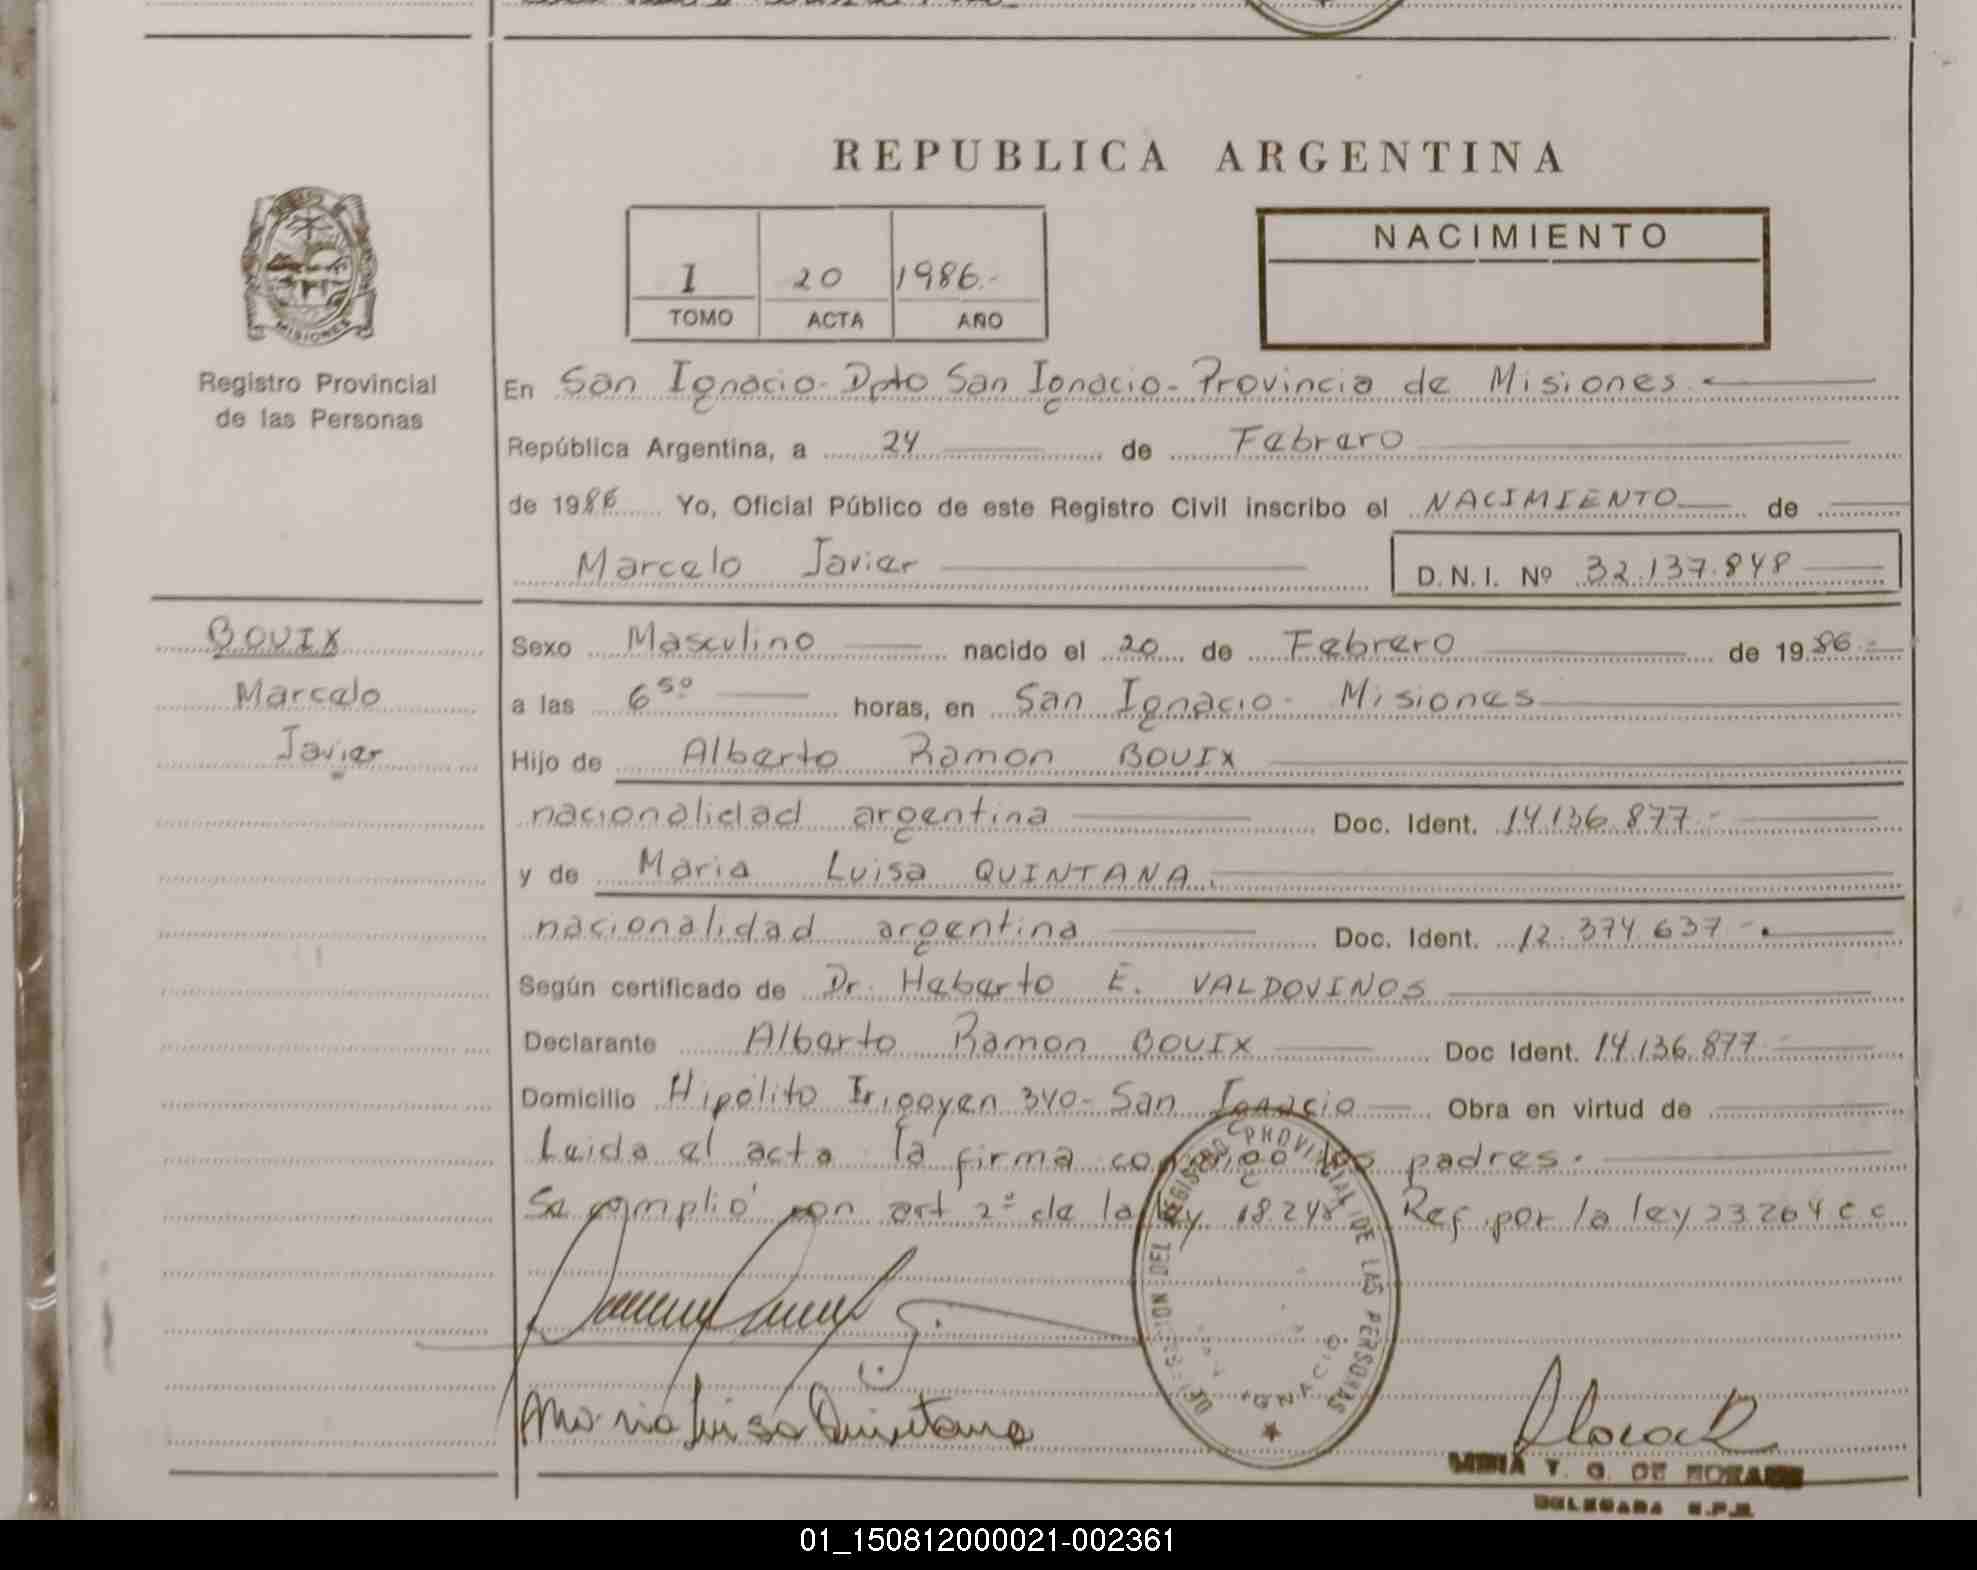 REPUBLICA ARGENTINA
NACIMIENTO
1 20 1986.-
TOMO ACTA AÑO
MISIONES
Registro Provincial
de las Personas
En San Ignacio - Dpto San Ignacio - Provincia de Misiones.
República Argentina, a 24 de Febrero
de 1986 Yo, Oficial Público de este Registro Civil inscribo el NACIMIENTO de
Marcelo Javier D.N.I. Nº 32.137.848
BOUIX
Marcelo
Javier
Sexo Masculino nacido el 20 de Febrero de 1986.-
a las 6 50 horas, en San Ignacio - Misiones
Hijo de Alberto Ramon BOUIX
nacionalidad argentina Doc. Ident. 14.136.877.-
y de Maria Luisa QUINTANA.
nacionalidad argentina Doc. Ident. 12.374.637-.
Según certificado de Dr. Heberto E. VALDOVINOS
Declarante Alberto Ramon BOUIX Doc Ident. 14.136.877
Domicilio Hipólito Irigoyen 340- San Ignacio Obra en virtud de
Leida el acta la firma conmigo los padres.
Se cumplió con art 2º de la ley 18.248 Ref. por la ley 23264 c c
REGISTRO PROVINCIAL DE LAS PERSONAS
IGNACIO
Maria Luisa Quintana
T. G. DE
DELEGADA R.P.P.
01_150812000021-002361